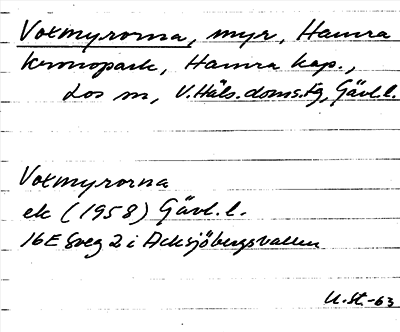 Voxmyrorna, myr, Hamra
kronopark, Hamra kap.,
Los sn, V.Häls.doms.tg, Gävl.l.
Voxmyrorna
ek (1958) Gävl.l.
16E Sveg 2 i Acksjöbergsvallen
U.St.-63